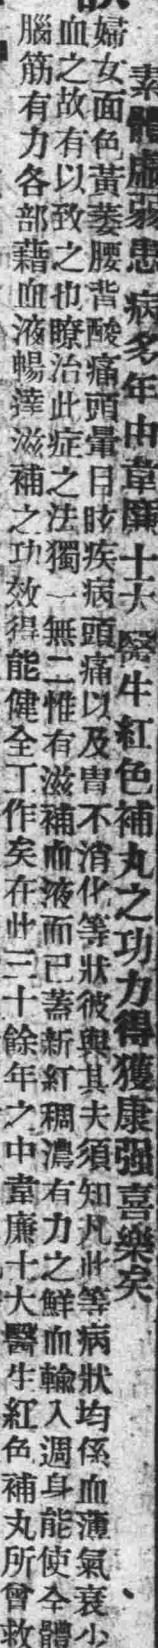 素體虛弱患病多年由韋廉士大醫生紅色補丸之功力得獲康强喜樂矣
婦女面色黃萎腰背酸痛頭暈目眩疾病頭痛以及胃不消化等狀彼與其夫須知凡此等病狀均係血薄氣衰少
血之故有以致之也瞭治此症之法獨一無二惟有滋補血液而已蓋新紅稠濃有力之鮮血輸入週身能使全體
腦筋有力各部藉血液暢達滋補之功效得能健全工作矣在此三十餘年之中韋廉士大醫生紅色補丸所曾救